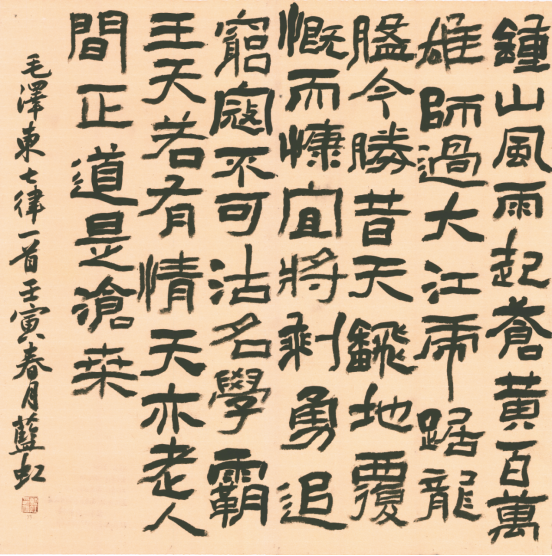 鍾山風雨起蒼黃百萬
雄師過大江虎踞龍
盤今勝昔天飜地覆
慨而慷宜將剩勇追
窮寇不可沽名學霸
王天若有情天亦老人
間正道是滄桒
毛澤東七律一首壬寅春月藍虹